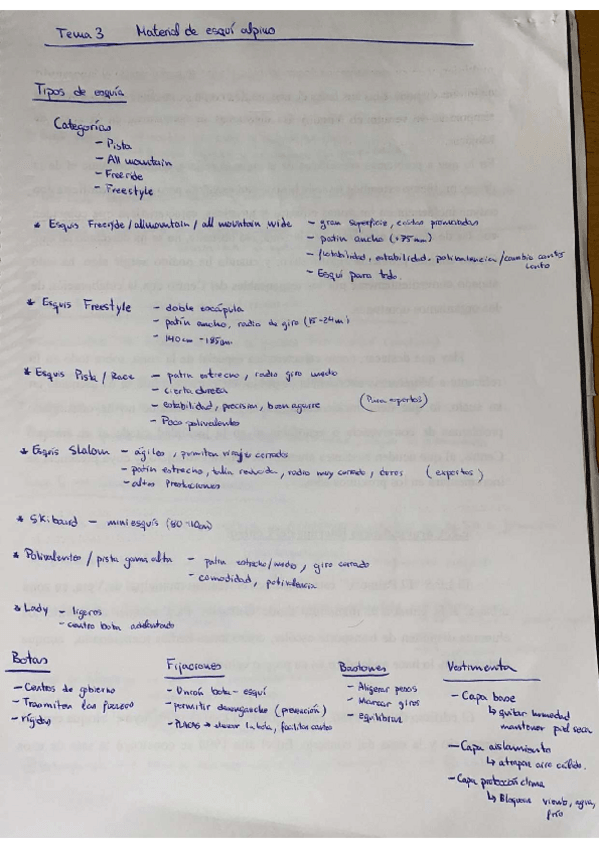 Tema 3 Material de esquí alpino
Tipos de esquís
Categorías
- Pista
- All mountain
- Freeride
- Freestyle
* Esquis Freeryde / allmountain / all mountain wide - gran superficie, cotas pronunciadas
- patín ancho (+75mm)
- flotabilidad, estabilidad, polivalencia / cambio cantos lento
- Esquí para todo.
* Esquis Freestyle - doble espátula
- patín ancho, radio de giro (15-24m)
- 140cm - 185cm.
* Esquis Pista / Race - patín estrecho, radio giro medio
- cierta dureza
- estabilidad, precision, buen agarre (Para expertos)
- Poco polivalente
* Esquis Slalom - ágiles, permiten virajes cerrados
- patín estrecho, talla reducida, radio muy cerrado, duros (expertos)
- altas prestaciones
* Skiboard - miniesquís (80-110cm)
* Polivalentes / pista gama alta - patín estrecho/medio, giro cerrado
- comodidad, polivalencia
* Lady - ligeros
- centro bota adelantado
Botas
- Centros de gobierno
- Trasmiten las fuerzas
- rígidas
Fijaciones
- Unión bota-esquí
- permitir desenganche (prevención)
- PLACAS → elevar la bota, facilitar canteo
Bastones
- Aligerar pesos
- Marcar giros
- equilibrar
Vestimenta
- Capa base
↳ quitar humedad mantener piel seca
- Capa aislamiento
↳ atrapar aire cálido.
- Capa protección clima
↳ Bloquea viento, agua, frío